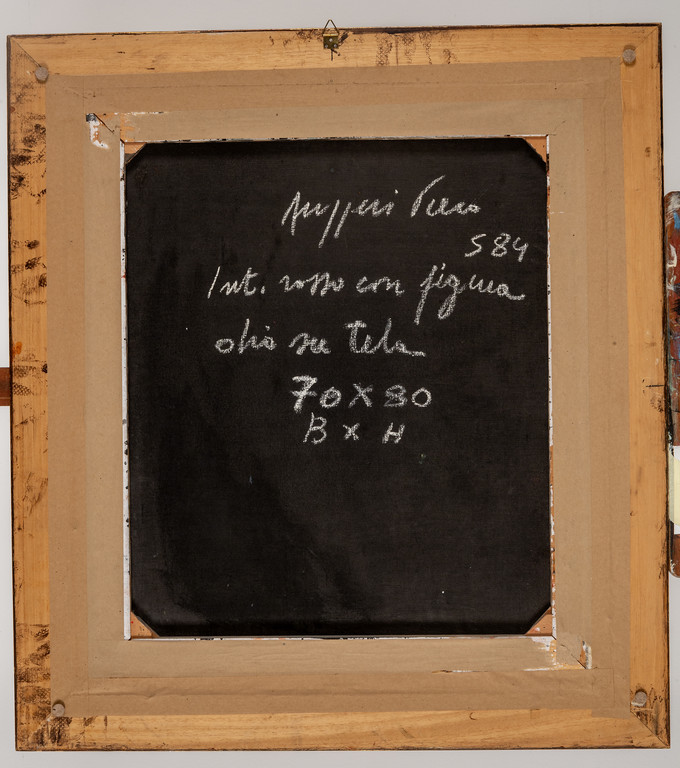 Ruggeri Piero
S 84
Int. rosso con figura
olio su tela
70 X 80
B x H